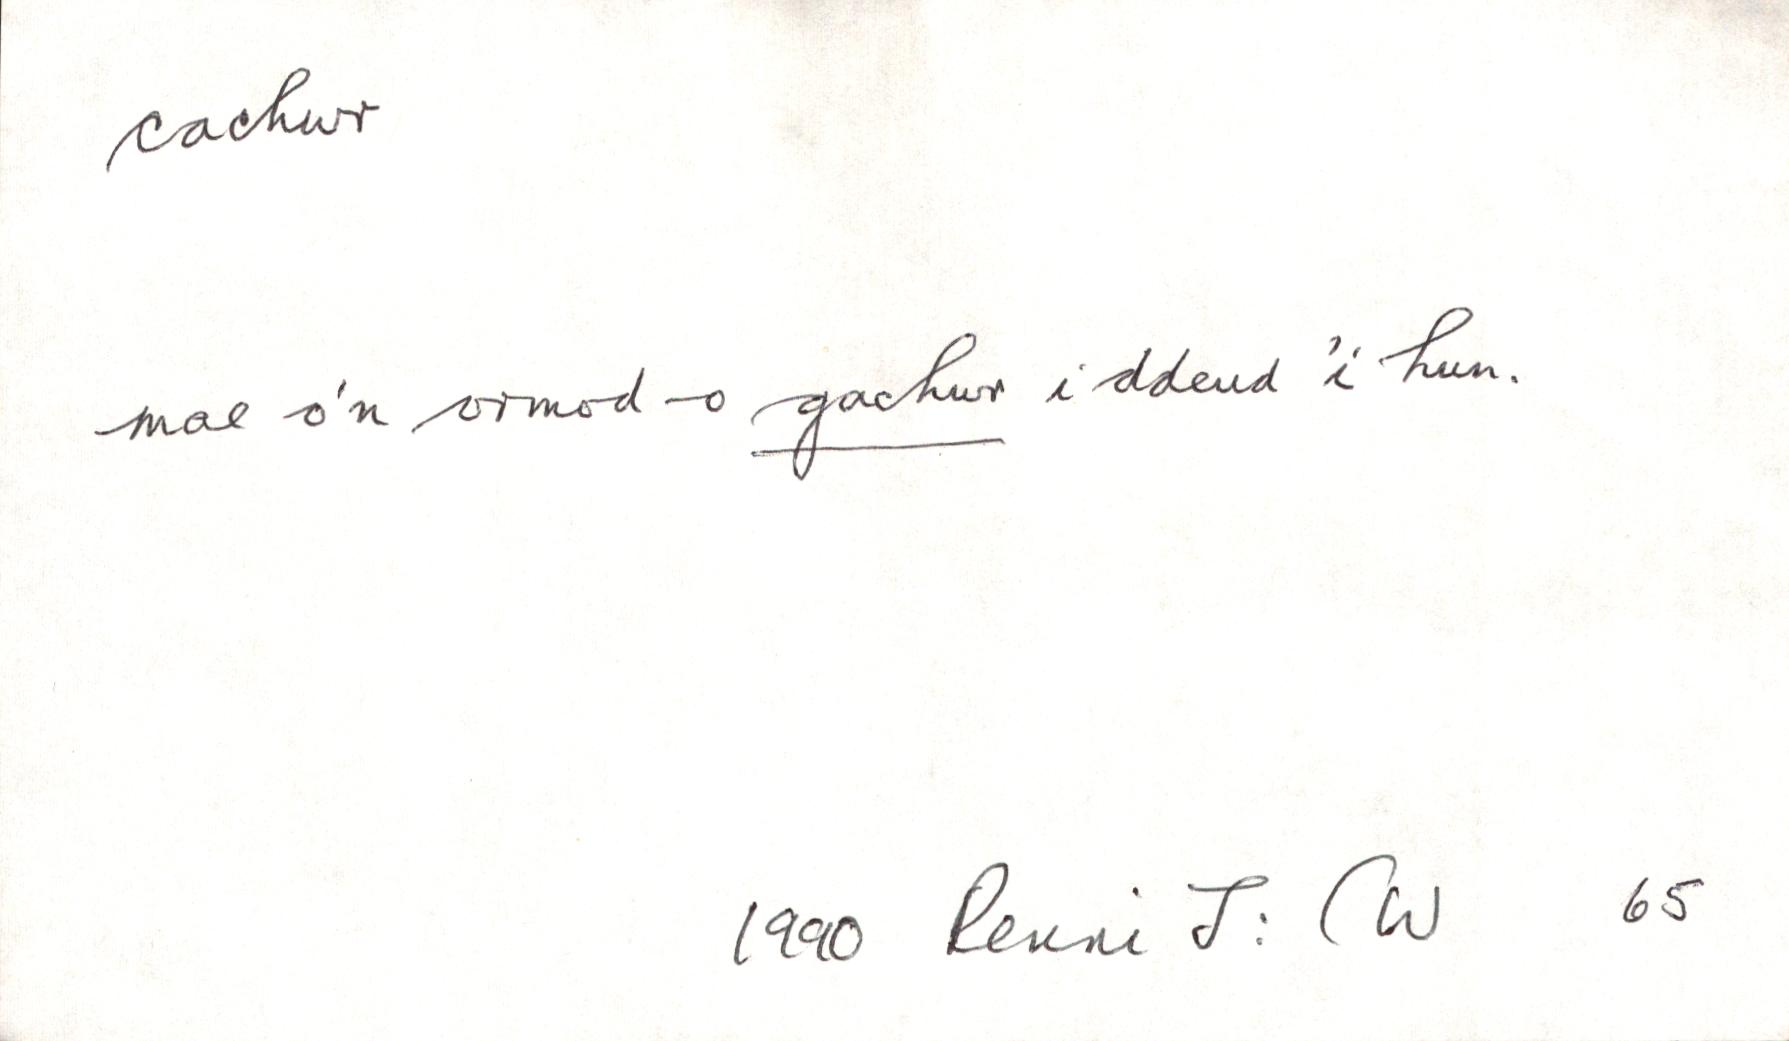 cachwr
mae o'n ormod o gachwr i ddeud 'i hun.
1990 Renni J: CW 65